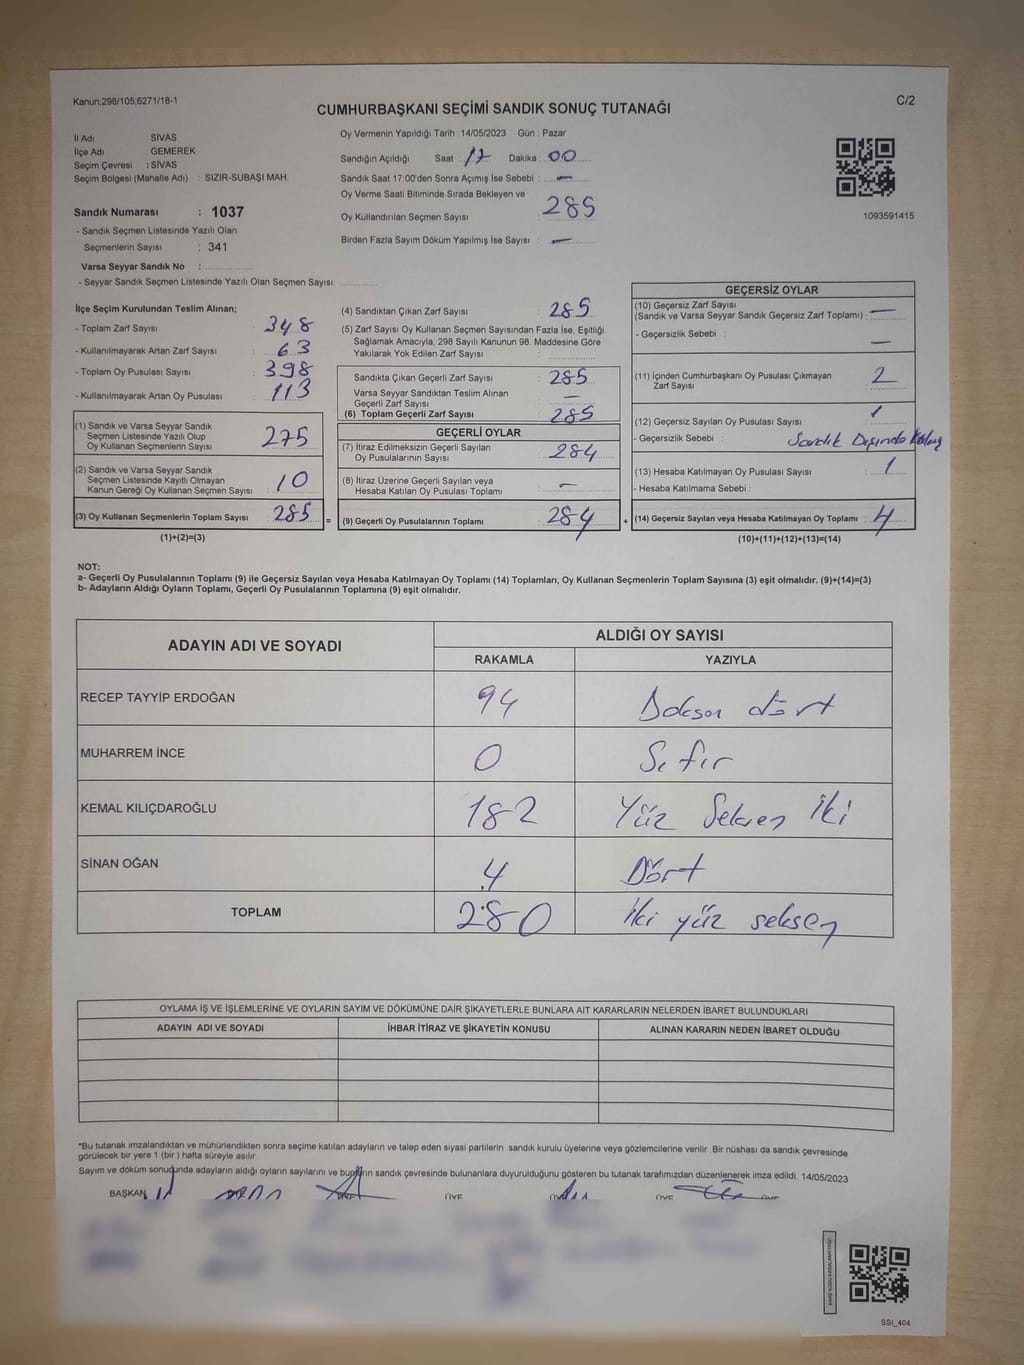 Kanun;298/105;6271/18-1
C/2
CUMHURBAŞKANI SEÇİMİ SANDIK SONUÇ TUTANAĞI
İl Adı : SİVAS
İlçe Adı : GEMEREK
Seçim Çevresi : SİVAS
Seçim Bölgesi (Mahalle Adı) : SIZIR-SUBAŞI MAH.
Sandık Numarası : 1037
- Sandık Seçmen Listesinde Yazılı Olan
Seçmenlerin Sayısı : 341
Varsa Seyyar Sandık No :
- Seyyar Sandık Seçmen Listesinde Yazılı Olan Seçmen Sayısı:
Oy Vermenin Yapıldığı Tarih : 14/05/2023 Gün : Pazar
Sandığın Açıldığı Saat : 17 Dakika : 00
Sandık Saat 17:00'den Sonra Açımış İse Sebebi : —
Oy Verme Saati Bitiminde Sırada Bekleyen ve
Oy Kullandırılan Seçmen Sayısı : 285
Birden Fazla Sayım Döküm Yapılmış İse Sayısı : —
1093591415
İlçe Seçim Kurulundan Teslim Alınan;
- Toplam Zarf Sayısı : 348
- Kullanılmayarak Artan Zarf Sayısı : 63
- Toplam Oy Pusulası Sayısı : 398
- Kullanılmayarak Artan Oy Pusulası : 113
(1) Sandık ve Varsa Seyyar Sandık
Seçmen Listesinde Yazılı Olup
Oy Kullanan Seçmenlerin Sayısı 275
(2) Sandık ve Varsa Seyyar Sandık
Seçmen Listesinde Kayıtlı Olmayan
Kanun Gereği Oy Kullanan Seçmen Sayısı 10
(3) Oy Kullanan Seçmenlerin Toplam Sayısı 285
(1)+(2)=(3)
(4) Sandıktan Çıkan Zarf Sayısı : 285
(5) Zarf Sayısı Oy Kullanan Seçmen Sayısından Fazla İse, Eşitliği
Sağlamak Amacıyla; 298 Sayılı Kanunun 98. Maddesine Göre
Yakılarak Yok Edilen Zarf Sayısı :
Sandıkta Çıkan Geçerli Zarf Sayısı : 285
Varsa Seyyar Sandıktan Teslim Alınan
Geçerli Zarf Sayısı : —
(6) Toplam Geçerli Zarf Sayısı : 285
GEÇERLİ OYLAR
(7) İtiraz Edilmeksizin Geçerli Sayılan
Oy Pusulalarının Sayısı : 284
(8) İtiraz Üzerine Geçerli Sayılan veya
Hesaba Katılan Oy Pusulası Toplamı : —
= (9) Geçerli Oy Pusulalarının Toplamı : 284 +
GEÇERSİZ OYLAR
(10) Geçersiz Zarf Sayısı
(Sandık ve Varsa Seyyar Sandık Geçersiz Zarf Toplamı) : —
- Geçersizlik Sebebi : —
(11) İçinden Cumhurbaşkanı Oy Pusulası Çıkmayan
Zarf Sayısı : 2
(12) Geçersiz Sayılan Oy Pusulası Sayısı : 1
- Geçersizlik Sebebi : Sandık Dışında
(13) Hesaba Katılmayan Oy Pusulası Sayısı : 1
- Hesaba Katılmama Sebebi :
(14) Geçersiz Sayılan veya Hesaba Katılmayan Oy Toplamı : 4
(10)+(11)+(12)+(13)=(14)
NOT:
a- Geçerli Oy Pusulalarının Toplamı (9) ile Geçersiz Sayılan veya Hesaba Katılmayan Oy Toplamı (14) Toplamları, Oy Kullanan Seçmenlerin Toplam Sayısına (3) eşit olmalıdır. (9)+(14)=(3)
b- Adayların Aldığı Oyların Toplamı, Geçerli Oy Pusulalarının Toplamına (9) eşit olmalıdır.
ADAYIN ADI VE SOYADI
ALDIĞI OY SAYISI
RAKAMLA YAZIYLA
RECEP TAYYİP ERDOĞAN 94 Doksan dört
MUHARREM İNCE 0 Sıfır
KEMAL KILIÇDAROĞLU 182 Yüz Seksen İki
SİNAN OĞAN 4 Dört
TOPLAM 280 İki yüz seksen
OYLAMA İŞ VE İŞLEMLERİNE VE OYLARIN SAYIM VE DÖKÜMÜNE DAİR ŞİKAYETLERLE BUNLARA AİT KARARLARIN NELERDEN İBARET BULUNDUKLARI
ADAYIN ADI VE SOYADI İHBAR İTİRAZ VE ŞİKAYETİN KONUSU ALINAN KARARIN NEDEN İBARET OLDUĞU
*Bu tutanak imzalandıktan ve mühürlendikten sonra seçime katılan adayların ve talep eden siyasi partilerin sandık kurulu üyelerine veya gözlemcilerine verilir. Bir nüshası da sandık çevresinde
görülecek bir yere 1 (bir ) hafta süreyle asılır.
Sayım ve döküm sonucunda adayların aldığı oyların sayılarını ve bunların sandık çevresinde bulunanlara duyurulduğunu gösteren bu tutanak tarafımızdan düzenlenerek imza edildi. 14/05/2023
BAŞKAN ÜYE ÜYE ÜYE
SSI_404